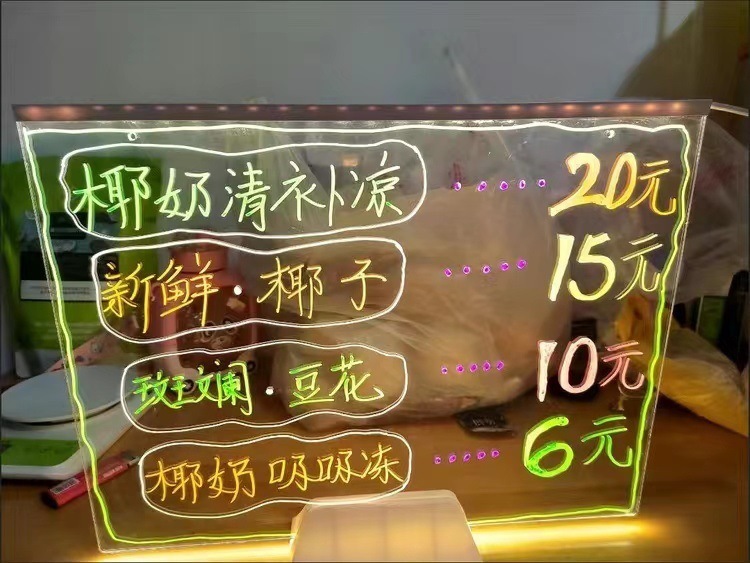 椰奶清补凉 ····· 20元
新鲜·椰子 ····· 15元
玫斑斓·豆花 ····· 10元
椰奶吸吸冻 ····· 6元